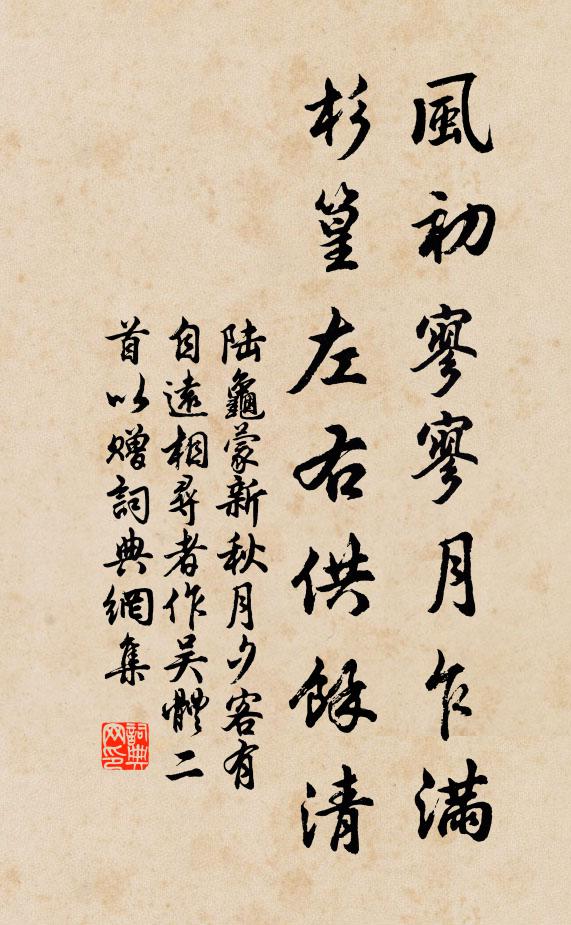 風初寥寥月乍滿
杉篁左右供餘清
陆龜蒙新秋月夕客有
自遠相尋者作吴體二
首以贈詞典網集
詞典
网印